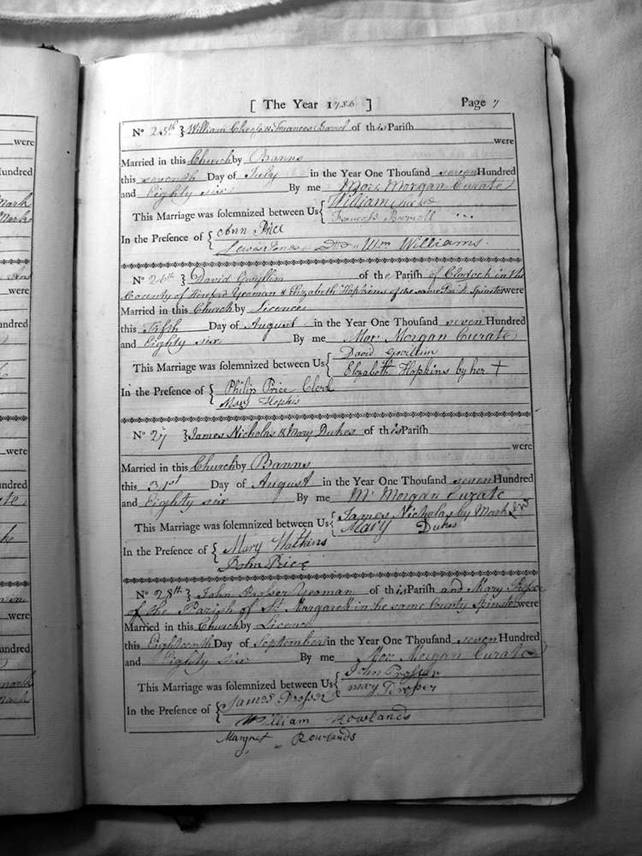 [ The Year 1786 ] Page 7
No 25th } William & Frances of this Parish
were
Married in this Church by Banns
this seventh Day of July in the Year One Thousand seven Hundred
and Eighty six By me Mor: Morgan Curate
This Marriage was solemnized between Us { William
Frances
In the Presence of { Ann Price
Lewis Jones Wm Williams
No 26th } David Gwillim of the Parish of Clodock in the
County of Hereford Yeoman & Elizabeth Hopkins of the same Parish Spinster were
Married in this Church by Licence
this Fifth Day of August in the Year One Thousand seven Hundred
and Eighty six By me Mor: Morgan Curate
This Marriage was solemnized between Us { David Gwillim
Elizabeth Hopkins by her +
In the Presence of { Philip Price Clerk
Mary Hopkis
No 27 } James Nicholas & Mary Dukes of this Parish
were
Married in this Church by Banns
this 31st Day of August in the Year One Thousand seven Hundred
and Eighty six By me Mr Morgan Curate
This Marriage was solemnized between Us { James Nicholas by Mark
Mary Dukes
In the Presence of { Mary Watkins
John Price
No 28th } John Prosser Yeoman of this Parish and Mary Prosser
of the Parish of St Margarets in the same County Spinster were
Married in this Church by Licence
this Eighteenth Day of September in the Year One Thousand seven Hundred
and Eighty six By me Mor: Morgan Curate
This Marriage was solemnized between Us { John Prosser
mary Proper
In the Presence of { James Prosser
William Rowlands
Margret Rowlands